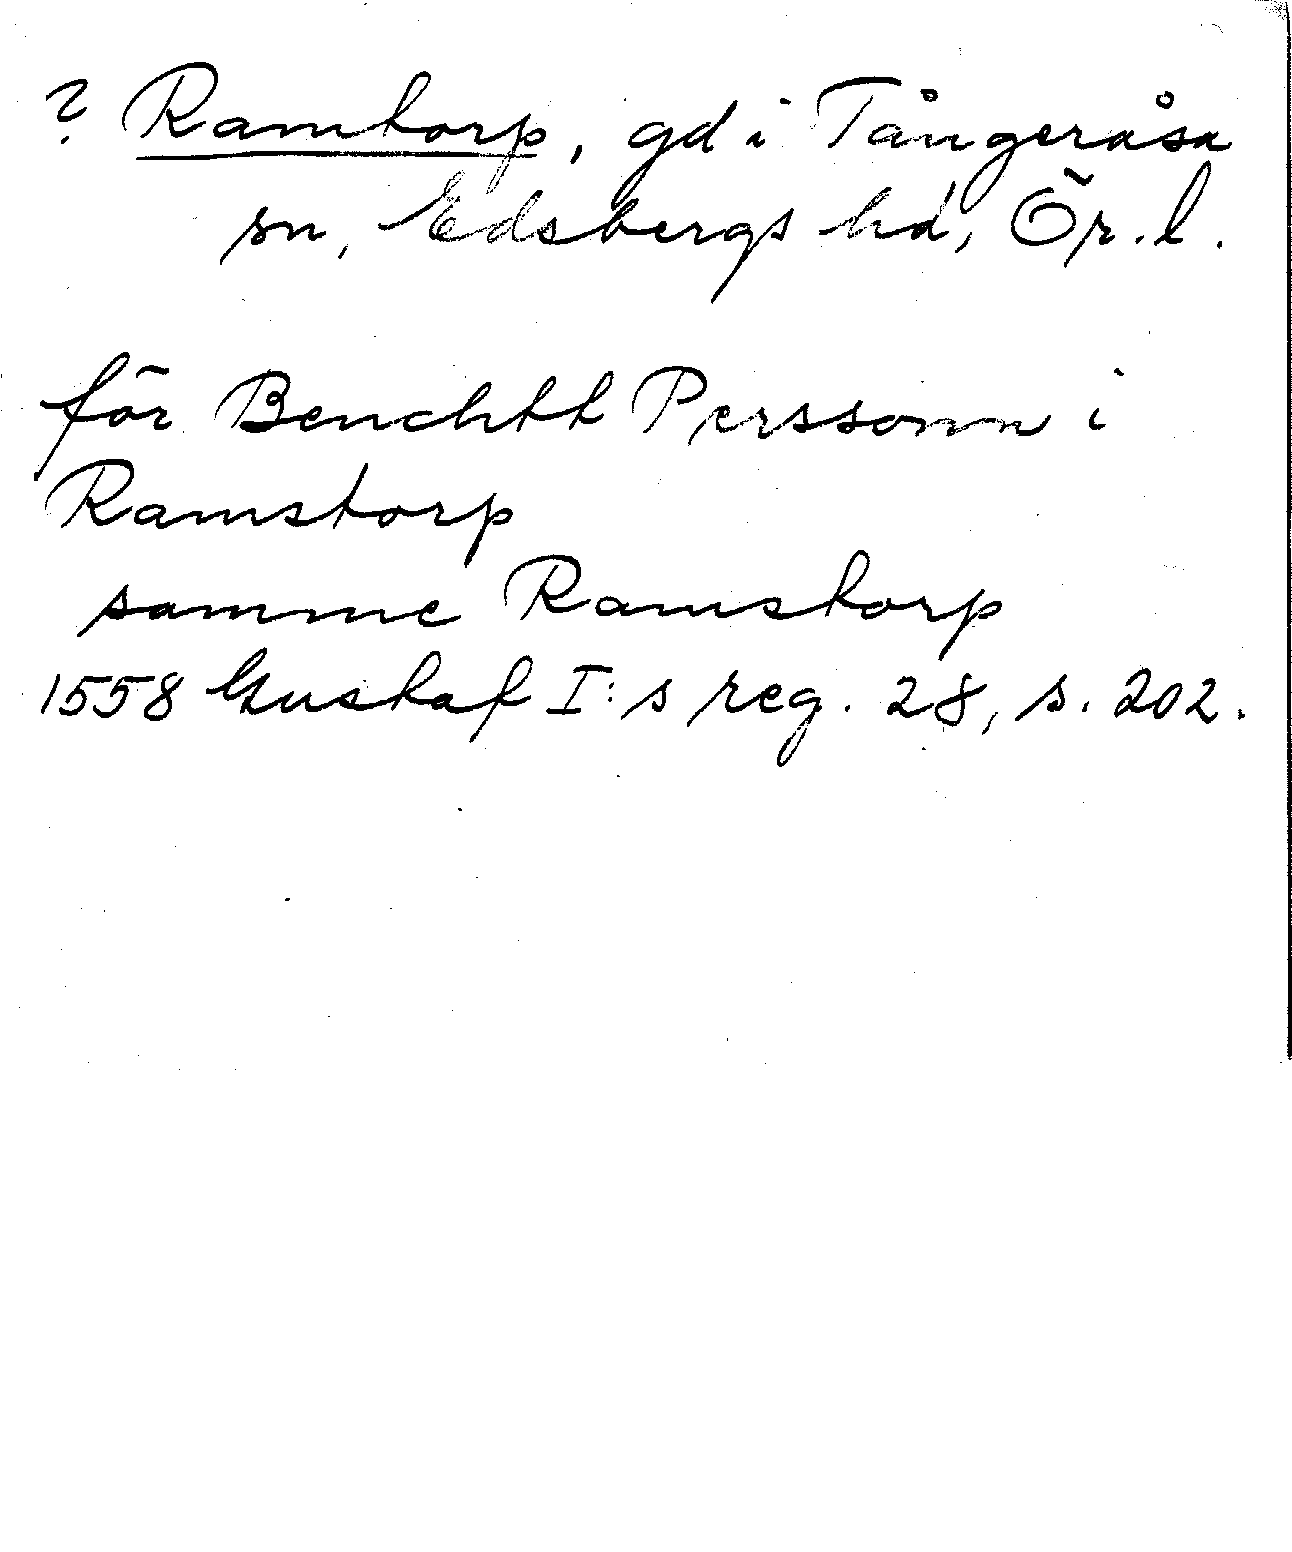 ? Ramtorp, gd i Tångeråsa
sn, Edsbergs hd, Ör. l.
för Benchtt Perssonn i
Ramstorp
samme Ramstorp
1558 Gustaf I:s reg. 28, s. 202.